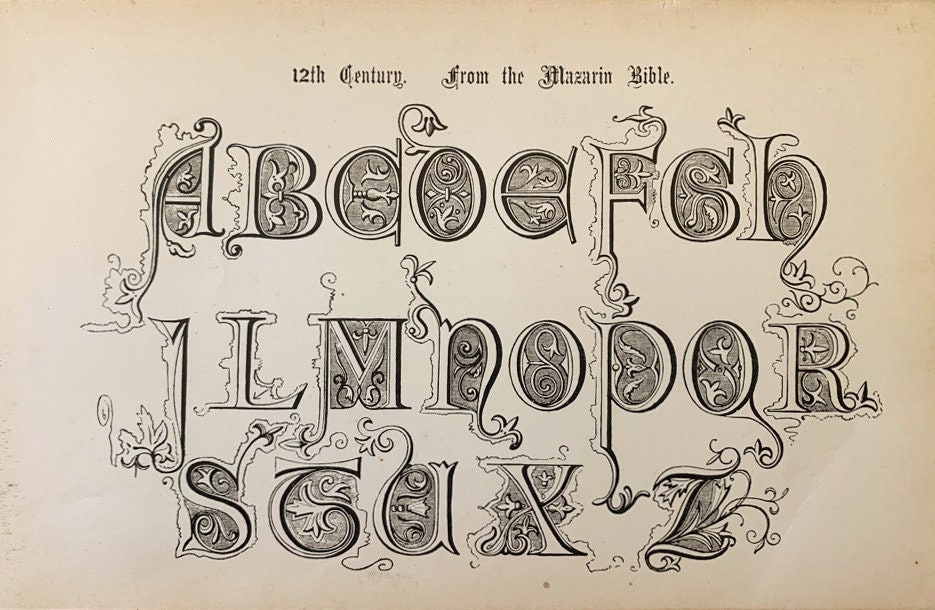 12th Century. From the Mazarin Bible.
A B C D E F G H
I L M N O P Q R
S T U X Z